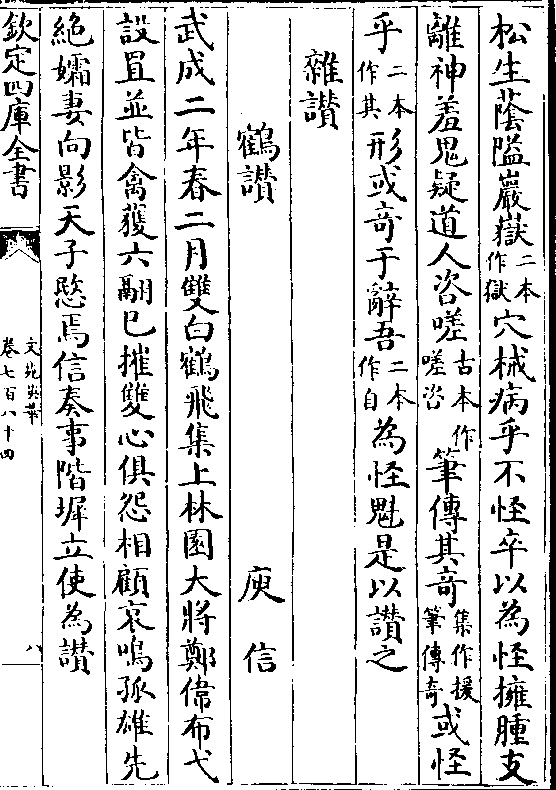 松生蔭隘巖嶽二本作獄穴械病乎不怪卒以為怪擁腫支
離神羞鬼疑道人咨嗟古本作嗟咨筆傳其竒集作援筆傳竒或怪
乎二本作其形或竒于辭吾二本作自為怪魁是以讃之
雜讃
鶴讃 庾信
武成二年春二月雙白鶴飛集上林園大將鄭偉布弋
設罝並皆禽獲六翮已摧雙心俱怨相顧哀鳴孤雄先
絶孀妻向影天子愍焉信奏事階墀立使為讃
欽定四庫全書
文苑英華
卷七百八十四
八